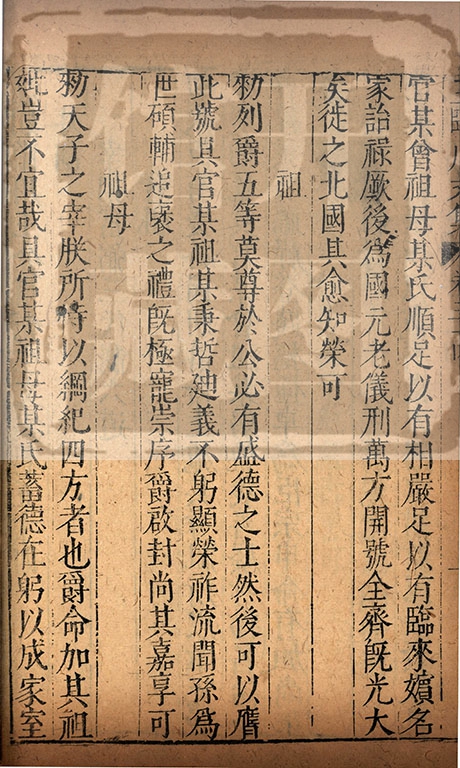 官某曾祖母某氏順足以有相嚴足以有臨來嬪名
家詒祿厥後爲國元老儀刑萬方開號全齊旣光大
矣徙之北國其愈知榮可
祖
勑列爵五等莫尊於公必有盛德之士然後可以膺
此號具官某祖某秉哲廸義不躬顯榮祚流聞孫爲
世碩輔追褒之禮旣極寵崇序爵啟封尚其嘉享可
祖母
勑天子之宰朕所恃以綱紀四方者也爵命加其祖
妣豈不宜哉具官某祖母某氏蓄德在躬以成家室